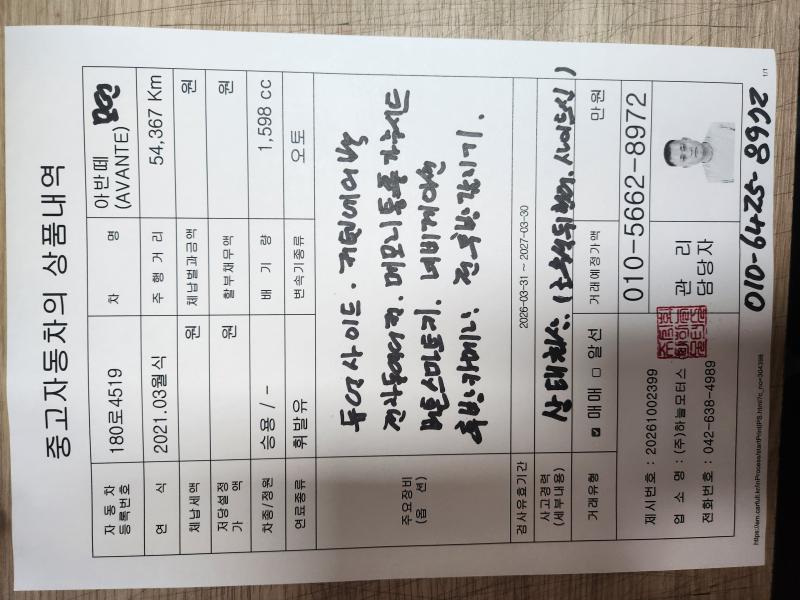 중고자동차의 상품내역
자 동 차
등록번호
180로4519
차 명
아반떼
(AVANTE)
연 식
2021.03월식
주 행 거 리
54,367 Km
체납세액
원
체납벌과금액
원
저당설정
가 액
원
할부채무액
원
차종/정원
승용 / -
배 기 량
1,598 cc
연료종류
휘발유
변속기종류
오토
주요장비
(옵 션)
두얼사이드. 커튼에어백
전자동에어컨. 메모리통풍
버튼스마트키. 네비게이션
후방카메라. 전후방감지기.
검사유효기간
2026-03-31 ~ 2027-03-30
사고경력
(세부내용)
상태
거래유형
☑ 매매 □ 알선
거래예정가액
만원
제시번호 : 20261002399
업 소 명 : (주)하늘모터스
전화번호 : 042-638-4989
관 리
담당자
010-5662-8972
010-6425-8992
1/1